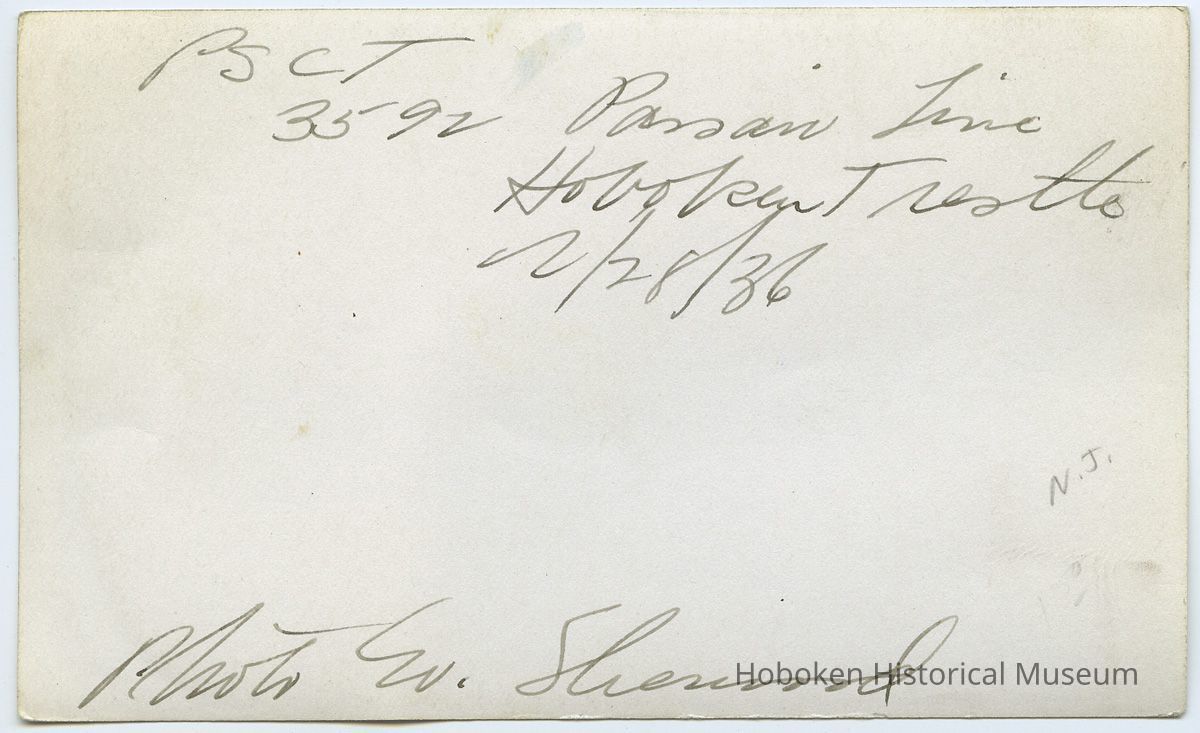 PSCT
3592 Passaic Line
Hoboken Trestle
2/28/36
N.J.
Photo W. Sherwood
Hoboken Historical Museum